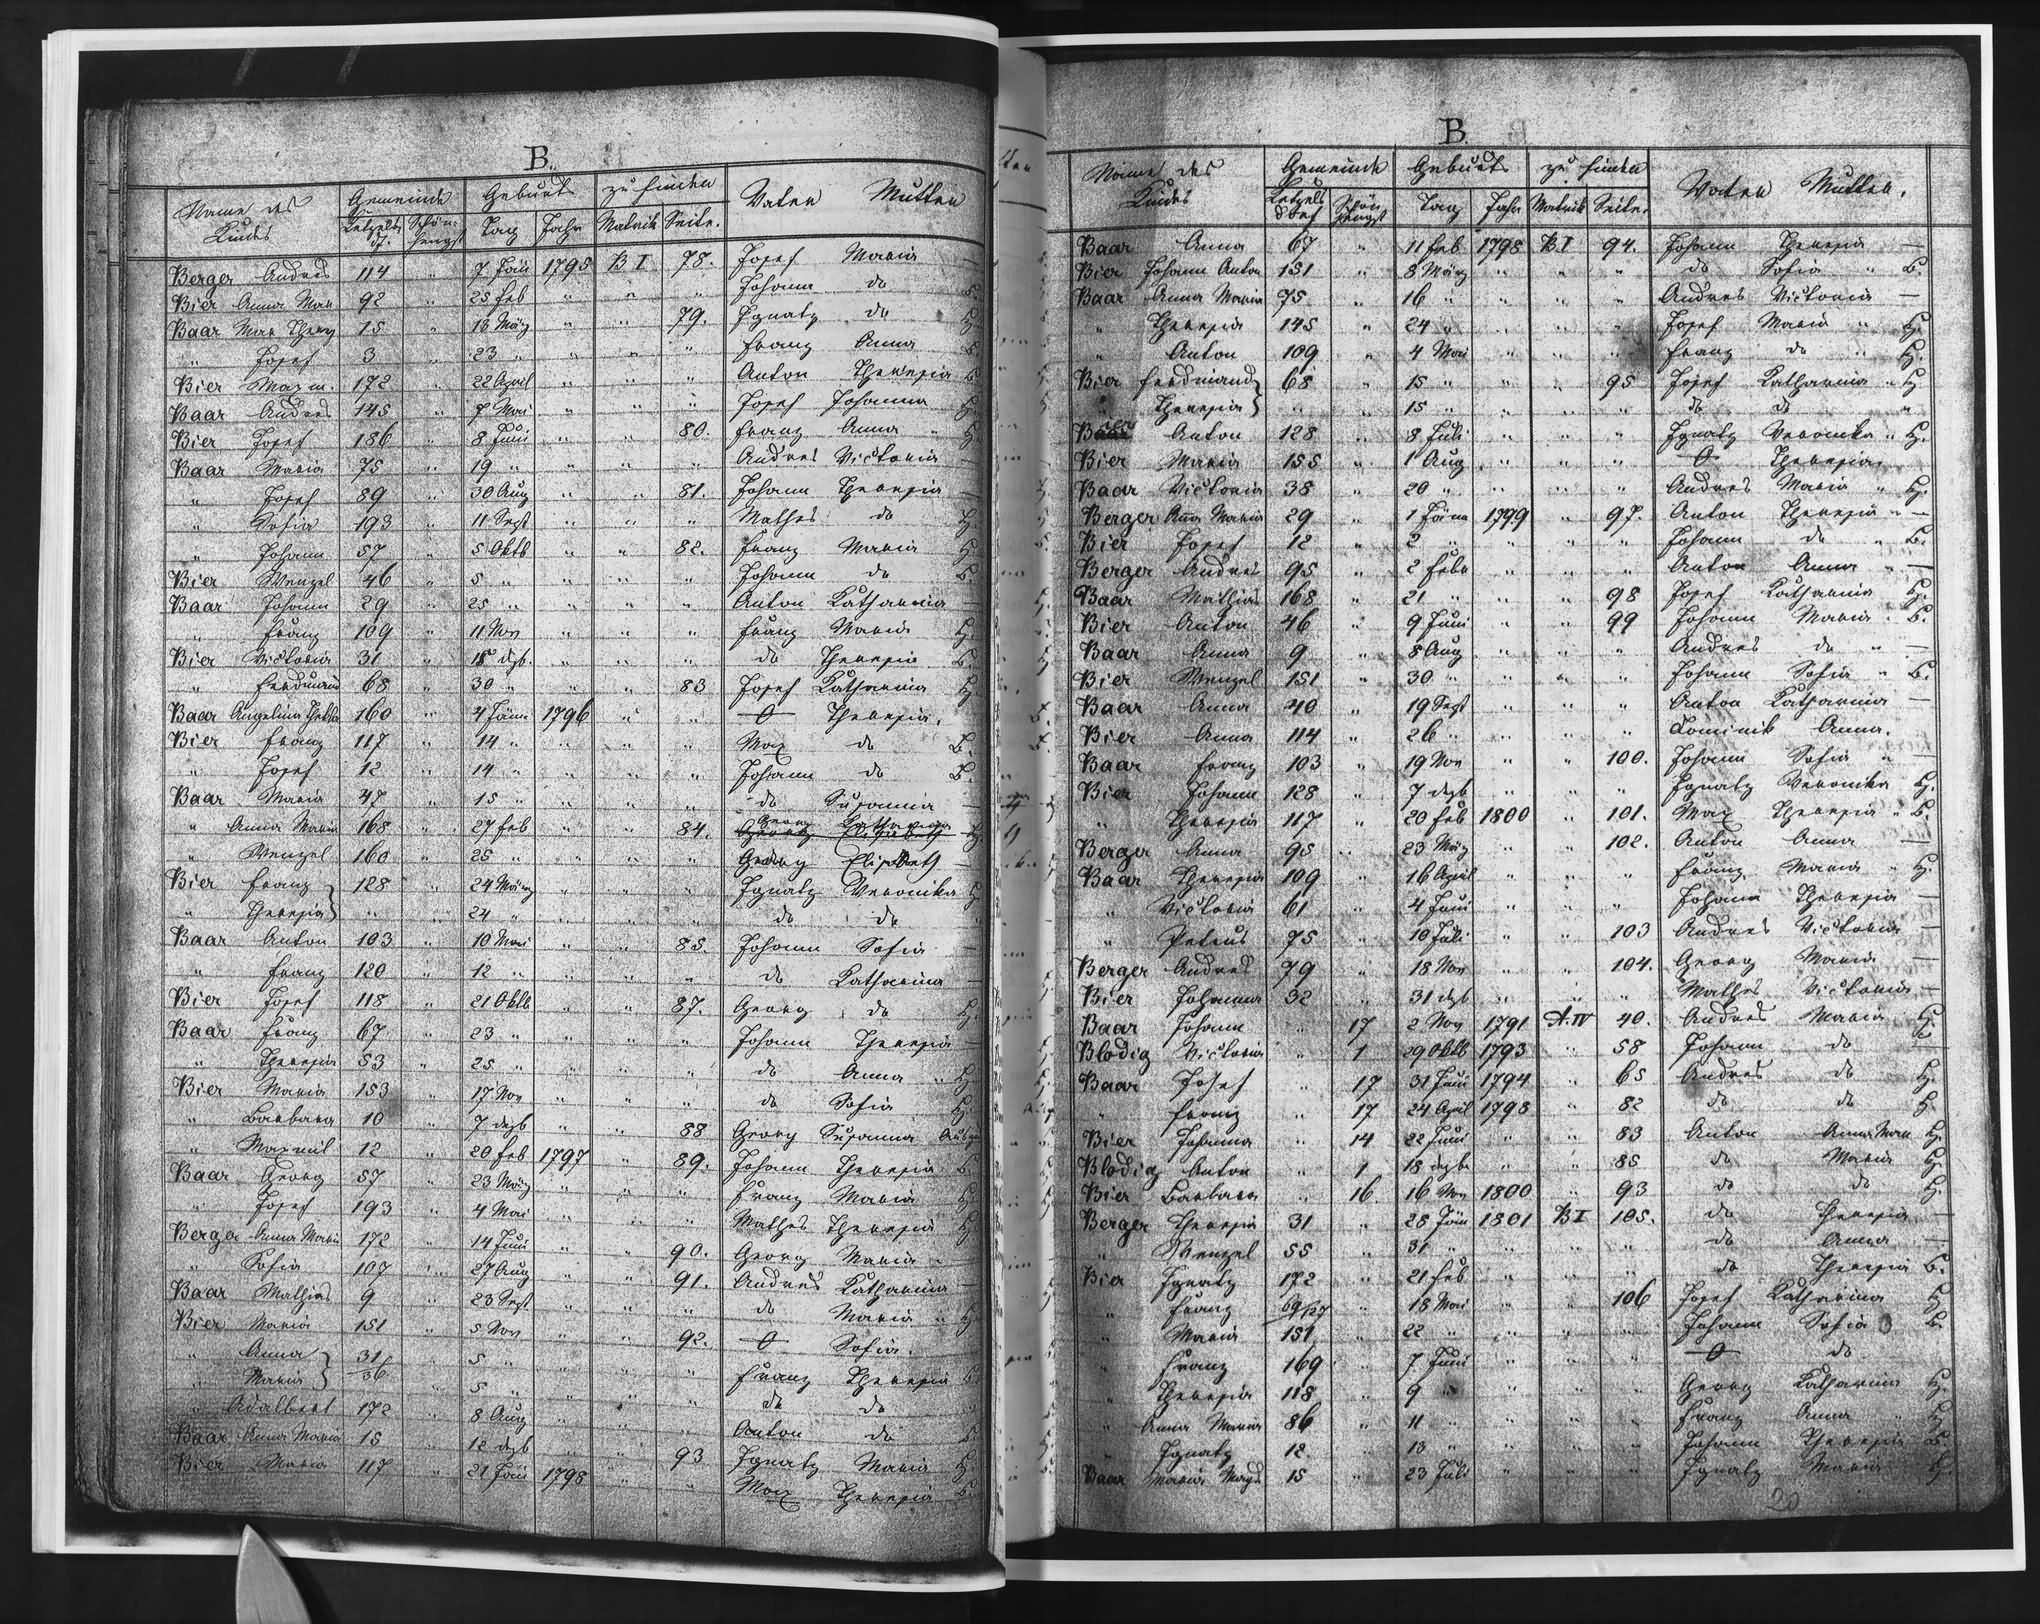 B.
Name des Kindes Gemeinde Geburts zu finden Vater Mutter
Letzelsdf. Schönhengst Tag Jahr Matrik Seite.
Berger Andres 114 " 7 Jäni 1795 B I 78. Josef Maria —
Bier Anna Mar 92 " 25 feb " " " Johann do B.
Baar Mar Theres 15 " 13 März " " 79. Ignatz do H.
" Josef 3 " 23 " " " " Franz Anna B.
Bier Maxm. 172 " 22 April " " " Anton Theresia B
Baar Andres 145 " 7 Mai " " " Josef Johanna H.
Bier Josef 186 " 8 Juni " " 80. Franz Anna H
Baar Maria 75 " 19 " " " " Andres Victoria —
" Josef 89 " 30 Aug " " 81. Johann Theresia —
" Sofia 193 " 11 Sept " " " Mathes do H.
" Johann 57 " 5 Oktb " " 82. Franz Maria H
Bier Wenzel 46 " 5 " " " " Johann do B
Baar Johann 29 " 25 " " " " Anton Katharina —
" Franz 109 " 11 Nov " " " Franz Maria H.
Bier Victoria 31 " 18 dzb. " " " do Theresia B.
" Ferdinand 68 " 30 " " " 83 Josef Katharina H.
Baar Angelina 160 " 4 Jänn 1796 " " O Theresia.
Bier Franz 117 " 14 " " " " Max do B.
" Josef 12 " 14 " " " " Johann do B.
Baar Maria 47 " 15 " " " " do Susanna —
" Anna Maria 168 " 27 feb " " 84. Georg Katharina H.
" Wenzel 160 " 25 " " " " Georg Elisabeth —
Bier Franz } 128 " 24 März " " " Ignatz Veronika H
" Theresia } " " 24 " " " " do do "
Baar Anton 103 " 10 Mai " " 85. Johann Sofia —
" Franz 120 " 12 " " " " do Katharina —
Bier Josef 118 " 21 Oktb " " 87. Georg do H.
Baar Franz 67 " 23 " " " " Johann Theresia —
" Theresia 53 " 25 " " " " do Anna " H
Bier Maria 153 " 17 Nov " " " do Sofia H.
" Barbara 10 " 7 dezb " " 88 Georg Susanna
" Maxmil 12 " 20 feb 1797 " 89. Johann Theresia B.
Baar Georg 57 " 23 März " " " Franz Maria H
" Josef 193 " 4 Mai " " " Mathes Theresia H
Berger Anna Maria 172 " 14 Juni " " 90. Georg Maria —
" Sofia 107 " 27 Aug " " 91. Andres Katharina —
Baar Mathias 9 " 23 Sept " " " do Maria " H
Bier Maria 151 " 5 Nov " " 92. O Sofia.
" Anna } 31/36 " 5 " " " " Franz Theresia B
" Maria } " 5 " " " " do do "
" Adalbert 172 " 8 Aug " " " Anton do B
Baar Anna Maria 15 " 12 dezb " " 93 Ignatz Maria H.
Bier Maria 117 " 21 Jäni 1798 " " Max Theresia B.
B.
Name des Kindes Gemeinde Geburts zu finden Vater Mutter.
Letzelsdorf Schönhengst Tag Jahr Matrik Seite.
Baar Anna 67 " 11 feb 1798 B I 94. Johann Theresia —
Bier Johann Anton 151 " 8 März " " " do Sofia " B.
Baar Anna Maria 75 " 16 " " " " Andres Victoria —
" Theresia 145 " 24 " " " " Josef Maria " H.
" Anton 109 " 4 Mai " " " Franz do " H.
Bier Ferdinand } 68 " 15 " " " 95 Josef Katharina " H
" Theresia } " " 15 " " " " do do "
Anton 128 " 8 Juli " " " Ignatz Veronika " H.
Bier Maria 155 " 1 Aug " " " O Theresia.
Baar Victoria 38 " 20 " " " " Andres Maria " H.
Berger Anna Maria 29 " 1 Jänn 1799 " 97. Anton Theresia " —
Bier Josef 12 " 2 " " " " Johann do " B.
Berger Andres 95 " 2 Febr " " " Anton Anna " —
Baar Mathias 168 " 21 " " " 98 Josef Katharina H.
Bier Anton 46 " 9 Juni " " 99 Johann Maria " B.
Baar Anna 9 " 8 Aug " " " Andres do " —
Bier Wenzel 151 " 30 " " " " Johann Sofia " B.
Baar Anna 40 " 19 Sept " " " Anton Katharina —
Bier Anna 114 " 26 " " " " Dominik Anna.
Baar Franz 103 " 19 Nov " " 100. Johann Sofia " —
Bier Johann 128 " 7 dezb " " " Ignatz Veronika H.
" Theresia 117 " 20 feb 1800 " 101. Max Theresia " B.
Berger Anna 95 " 23 März " " 102. Anton Anna —
Baar Theresia 109 " 16 April " " " Franz Maria " H.
" Victoria 61 " 4 Juni " " " Johann Theresia —
" Petrus 75 " 10 Juli " " 103 Andres Victoria —
Berger Andres 79 " 18 Nov " " 104. Georg Maria —
Bier Johanna 32 " 31 dezb " " " Mathes Victoria —
Baar Johann " 17 2 Nov 1791 A.IV 40. Andres Maria H.
Blodig Victoria " 1 29 Oktb 1793 " 58 Johann do
Baar Josef " 17 31 Juni 1794 " 65 Andres do H.
" Franz " 17 24 April 1798 " 82 do do H.
Bier Johanna " 14 22 Juni " " 83 Anton Anna Mar H.
Blodig Anton " 1 18 dezbr " " 85 do Maria
Bier Barbara " 16 16 Nov 1800 " 93 do do H.
Berger Theresia 31 " 28 Jäni 1801 B I 105. do Theresia —
" Wenzel 55 " 31 " " " " do Anna —
Bier Ignatz 172 " 21 feb " " " do Theresia B.
" Franz 69/27 " 18 Mai " " 106 Josef Katharina H
" Maria 151 " 22 " " " " Johann Sofia B.
" Franz 169 " 7 Juni " " " O do
" Theresia 118 " 9 " " " " Georg Katharina H.
" Anna Maria 86 " 11 " " " " Franz Anna " H
" Ignatz 12 " 13 " " " " Johann Theresia B.
Baar Maria Magd 15 " 23 Juli " " " Ignatz Maria H
20